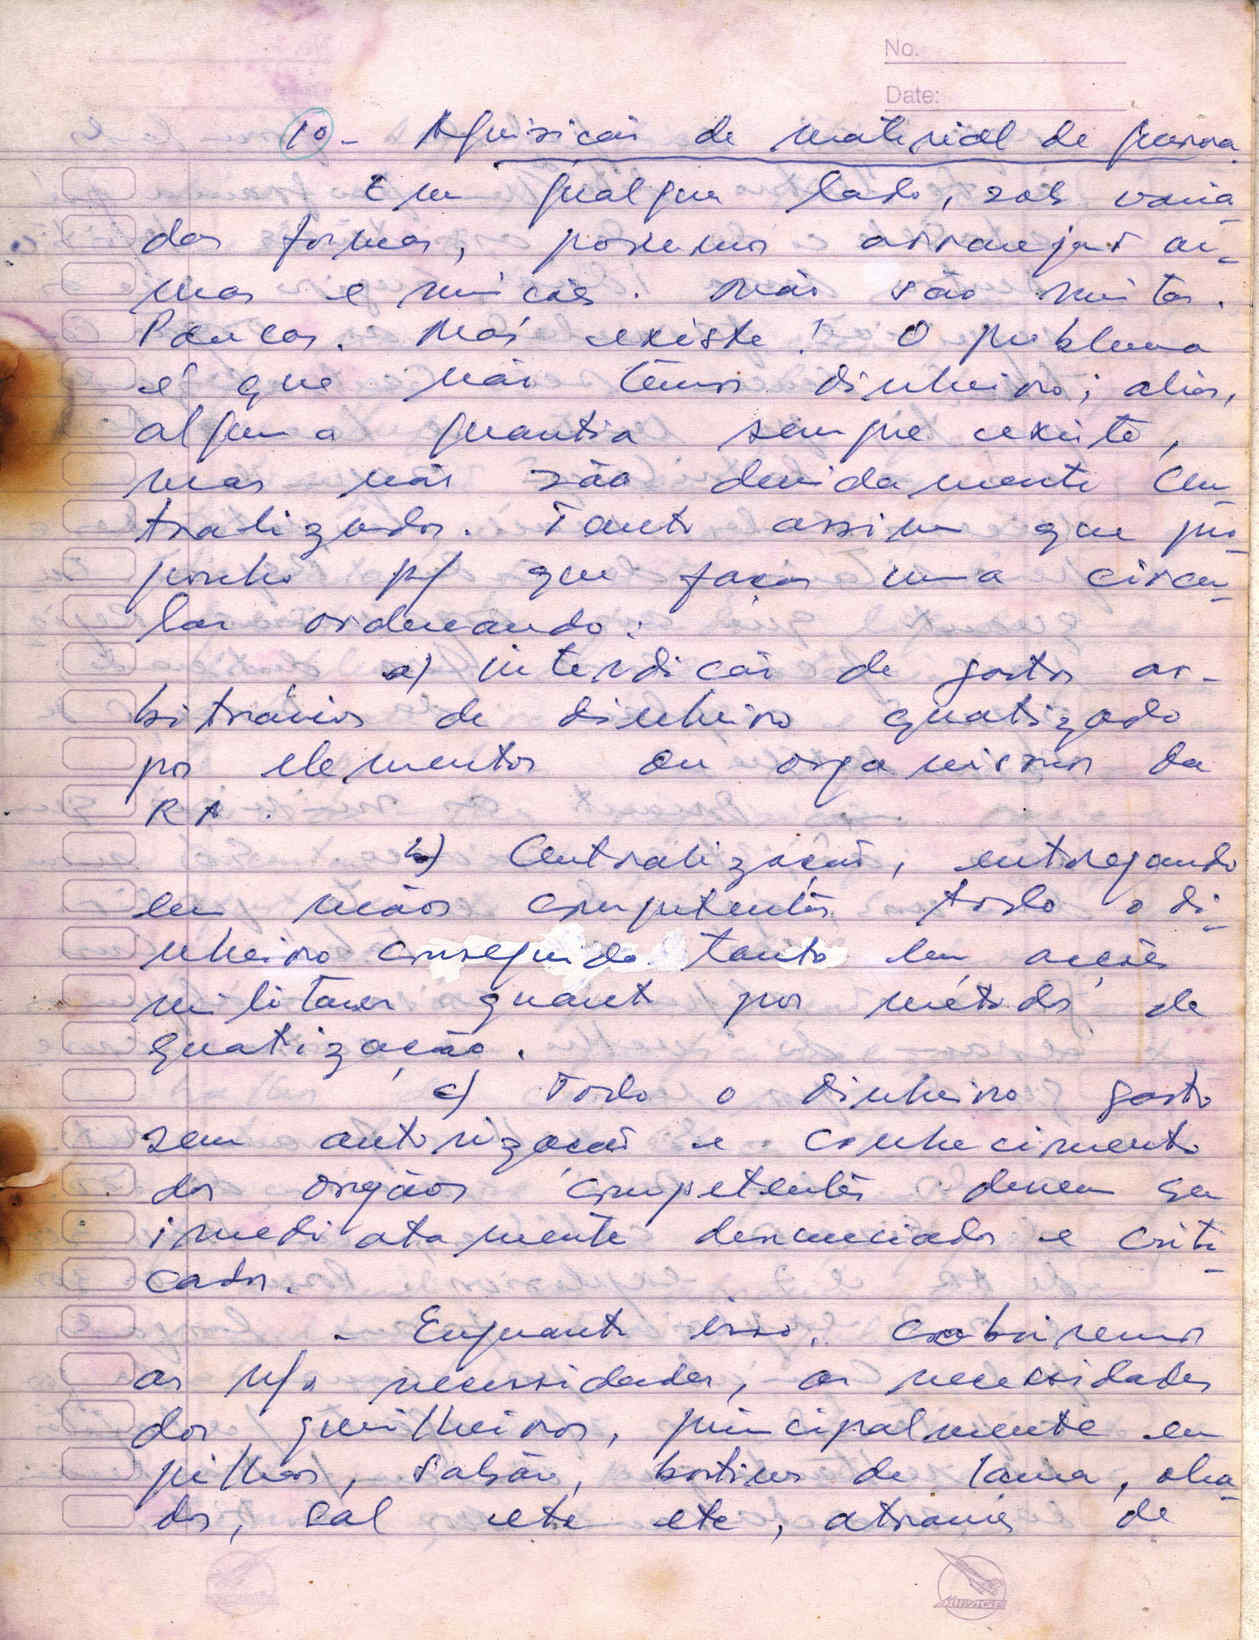 No.
Date:
10 - Aquisicão de material de guerra
Em qualquer lado, sob varia-
das formas, podemos arranejar ar-
mas e municões. Não são muitas.
Poucas. Mas existe! O problema
é que não temos dinheiro; aliás,
alguma quantia sempre existe,
mas não são devidamente cen-
tralizados. Tanto assim que pro-
ponho p/ que façam uma circu-
lar ordenando:
a) interdicão de gastos ar-
bitrários de dinheiro quotizado
por elementos ou organismos da
RA.
b) Centralização, entregando
em mãos competentes todo o di-
nheiro conseguido tanto em acções
militares quanto por método de
quotização.
c) Todo o dinheiro gasto
sem autorização e conhecimento
dos orgãos competentes devem ser
imediatamente denunciados e criti-
cados.
- Enquanto isso, cobriremos
as n/s necessidades, as necessidades
dos guerilheiros, principalmente em
pilhas, sabão, botins de lama, olea-
dos, sal etc etc, através de